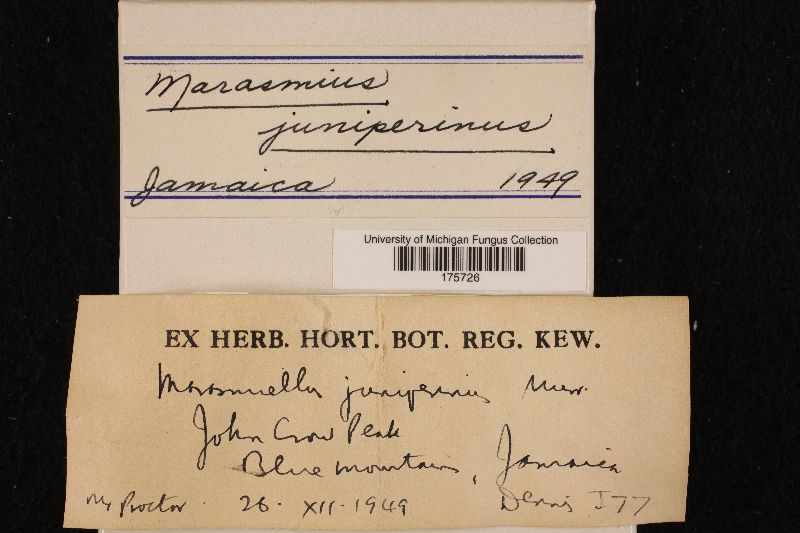 Marasmius
juniperinus
Jamaica 1949
University of Michigan Fungus Collection
175726
EX HERB. HORT. BOT. REG. KEW.
Marasmiellus juniperinus Murr.
John Crow Peak
Blue Mountains, Jamaica
Proctor. 26. XII. 1949 Dennis J77